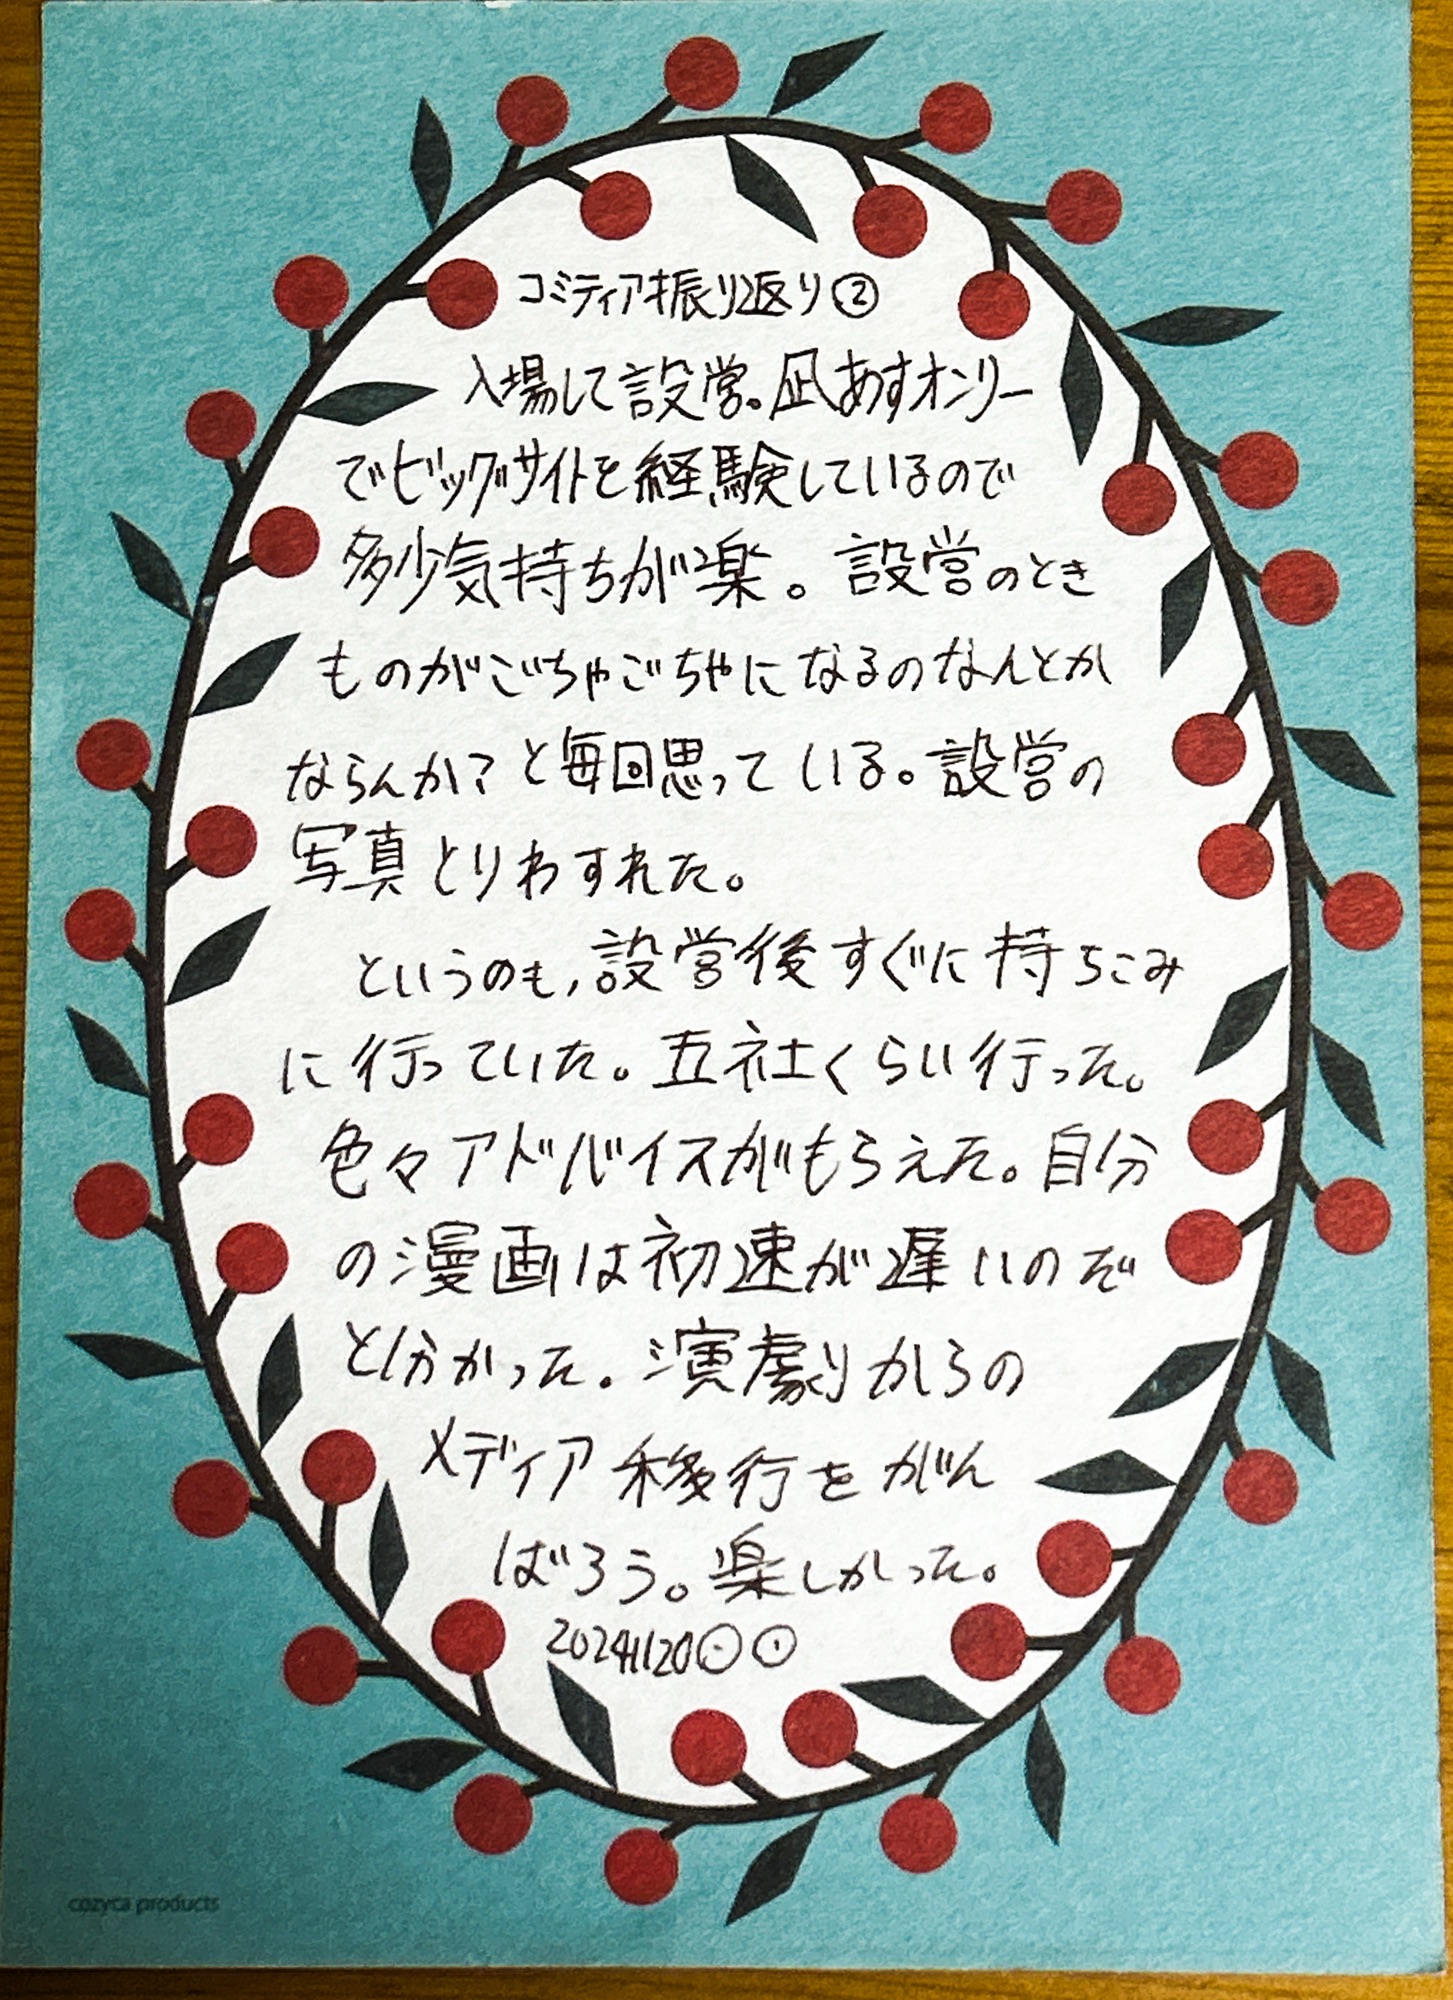 コミティア振り返り②
入場して設営。凪あすオンリー
でビッグサイトを経験しているので
多少気持ちが楽。設営のとき
ものがごちゃごちゃになるのなんとか
ならんか?と毎回思っている。設営の
写真とりわすれた。
というのも,設営後すぐに持ちこみ
に行っていた。五社くらい行った。
色々アドバイスがもらえた。自分
の漫画は初速が遅いのだ
と分かった。演劇からの
メディア移行をがん
ばろう。楽しかった。
20241120
cozyca products